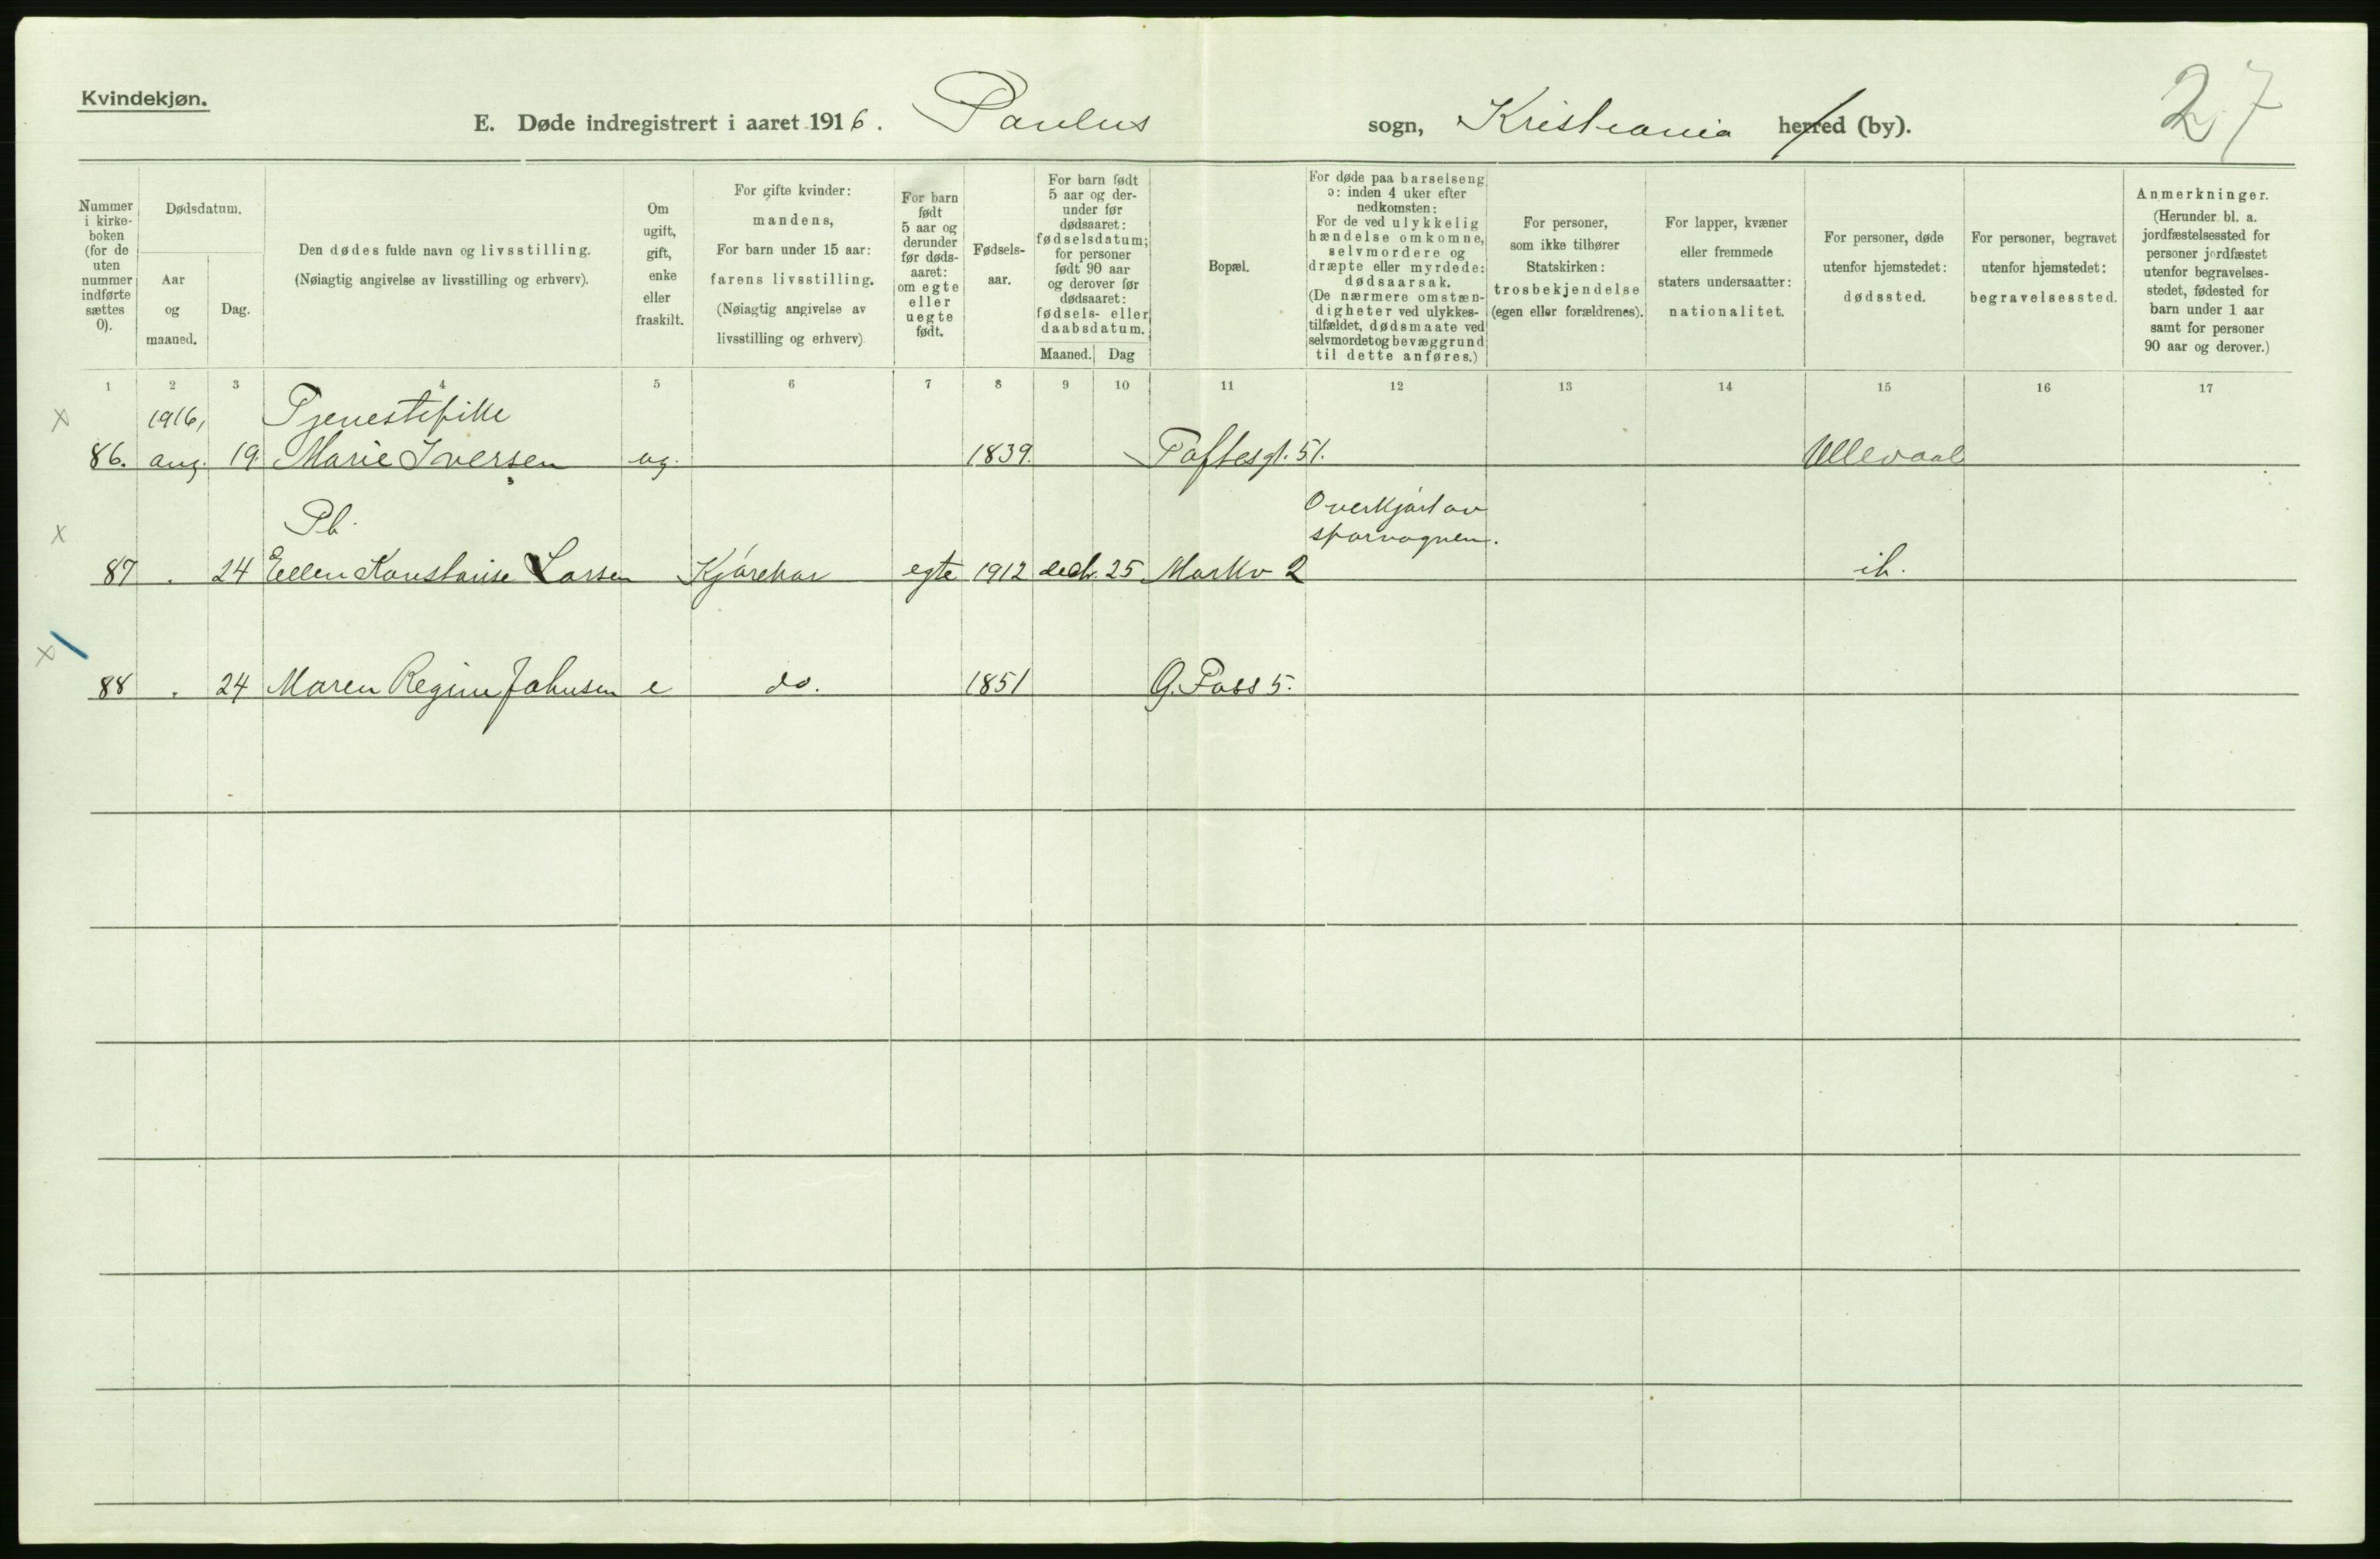 Kvindekjøn.
E. Døde indregistrert i aaret 1916. Paulus sogn, Kristiania herred (by).
27
Nummer i kirke-boken (for de uten nummer indførte sættes 0).
Dødsdatum.
Aar og maaned.
Dag.
Den dødes fulde navn og livsstilling.
(Nøiagtig angivelse av livsstilling og erhverv).
Om ugift, gift, enke eller fraskilt.
For gifte kvinder:
mandens,
For barn under 15 aar:
farens livsstilling.
(Nøiagtig angivelse av
livsstilling og erhverv)
For barn født 5 aar og derunder før døds-aaret: om egte eller uegte født.
Fødsels-aar.
For barn født 5 aar og der-under før dødsaaret: fødselsdatum; for personer født 90 aar og derover før dødsaaret: fødsels- eller daabsdatum.
Maaned. Dag
Bopæl.
For døde paa barselseng
ɔ: inden 4 uker efter
nedkomsten:
For de ved ulykkelig
hændelse omkomne,
selvmordere og
dræpte eller myrdede:
dødsaarsak.
(De nærmere omstæn-
digheter ved ulykkes-
tilfældet, dødsmaate ved
selvmordet og bevæggrund
til dette anføres.)
For personer,
som ikke tilhører
Statskirken:
trosbekjendelse
(egen eller forældrenes).
For lapper, kvæner
eller fremmede
staters undersaatter:
nationalitet.
For personer, døde
utenfor hjemstedet:
dødssted.
For personer, begravet
utenfor hjemstedet:
begravelsessted.
Anmerkninger.
(Herunder bl. a.
jordfæstelsessted for
personer jordfæstet
utenfor begravelses-
stedet, fødested for
barn under 1 aar
samt for personer
90 aar og derover.)
1 2 3 4 5 6 7 8 9 10 11 12 13 14 15 16 17
x 1916, Tjenestepike
86. aug. 19. Marie Iversen ug. 1839. Toftesgt. 51. Ullevaal
x Pb. Overkjørt av
sporvognen.
87 . 24 Ellen Konstanse Larsen Kjørekar egte 1912 decb. 25 Markv 2 ib.
x
88 . 24 Maren Regine Johnsen e do. 1851 G. Pass 5.